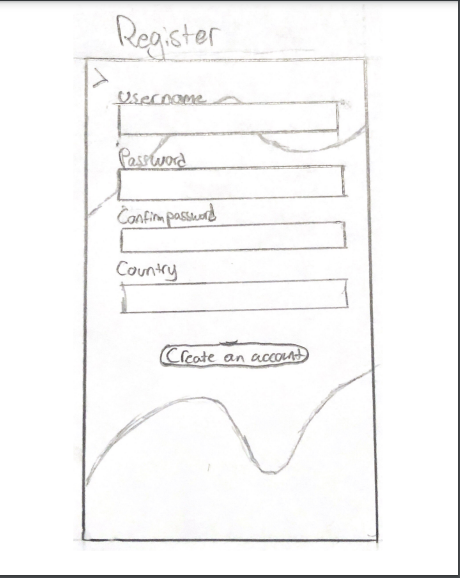 Register
>
Username
Password
Confirm password
Country
Create an account